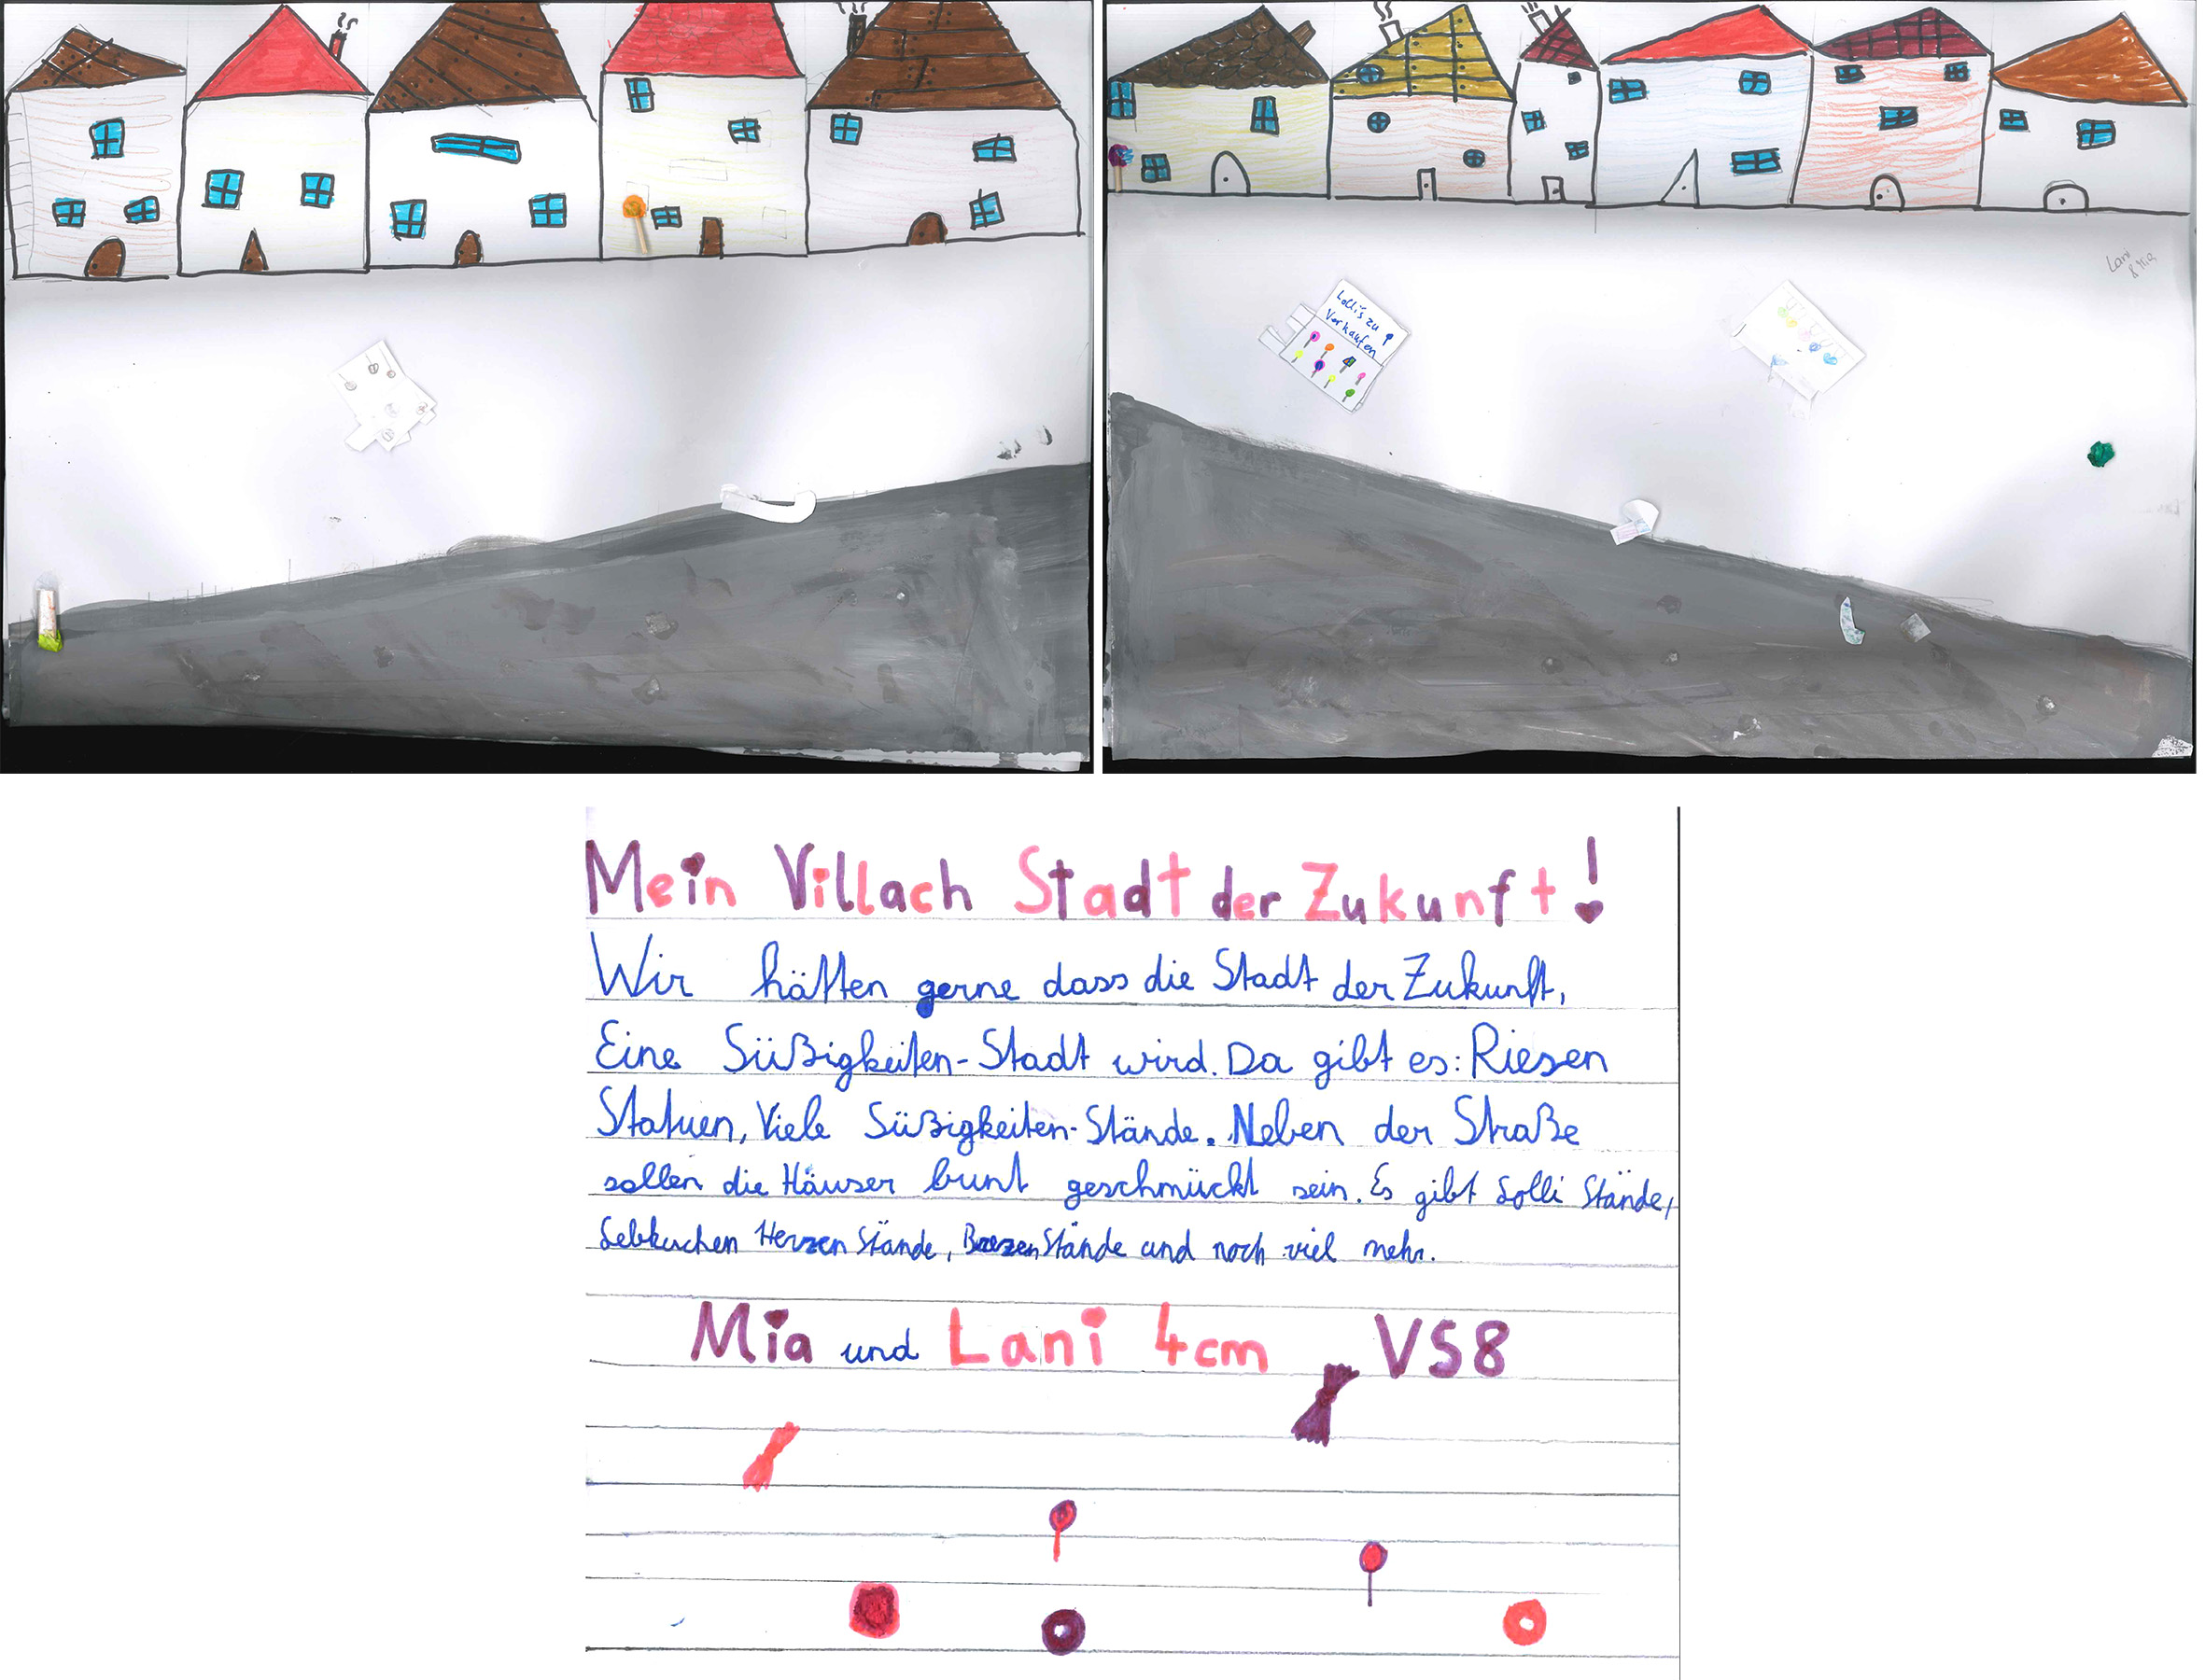 Lolli's zu
Verkaufen
Lani
& Mia
Mein Villach Stadt der Zukunft!
Wir hätten gerne dass die Stadt der Zukunft,
Eine Süßigkeiten-Stadt wird. Da gibt es: Riesen
Statuen, Viele Süßigkeiten-Stände. Neben der Straße
sollen die Häuser bunt geschmückt sein. Es gibt Lolli Stände,
Lebkuchen Herzen Stände, Brezen Stände und noch viel mehr.
Mia und Lani 4cm VS8